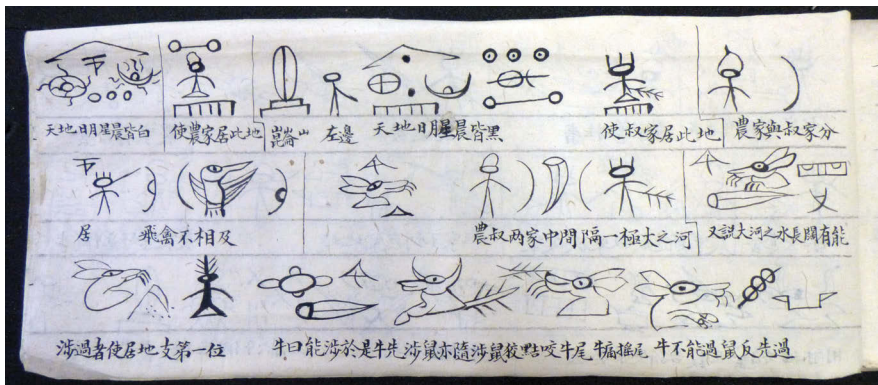 天地日月星晨皆白 使農家居此地 崑崙山 左邊 天地日月星晨皆黑 使叔家居此地 農家與叔家分
居 飛禽不相及 農叔两家中間隔一極大之河 又説大河之水長闊有能
涉過者使居地支第一位 牛曰能涉於是牛先涉鼠亦隨涉鼠狡點咬牛尾牛痛摇尾 牛不能過鼠反先過